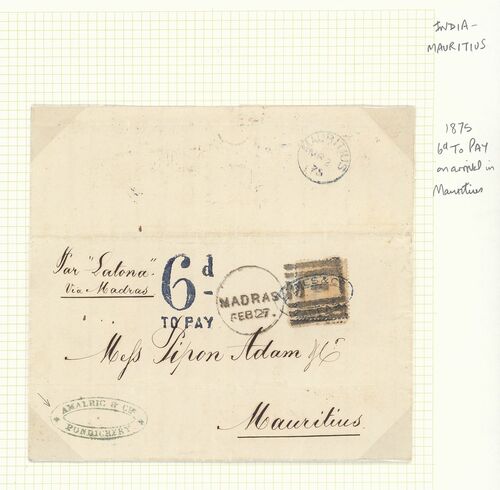 INDIA -
MAURITIUS
1875
6d TO PAY
on arrival in
Mauritius
MAURITIUS
MR 2
75
Par "Latona"
Via Madras
6d
TO PAY
MADRAS
FEB 27.
Mess Pipon Adam & Co
Mauritius
AMALRIC & Cie
PONDICHERY